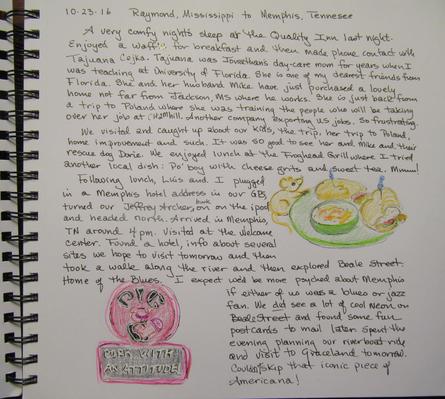 10-23-16 Raymond, Mississippi to Memphis, Tennesee
A very comfy nights sleep at the Quality Inn last night.
Enjoyed a waffle for breakfast and then made phone contact with
Tajuana Cejka. Tajuana was Jonathan's day-care mom for years when I
was teaching at University of Florida. She is one of my dearest friends from
Florida. She and her husband Mike have just purchased a lovely
home not far from Jackson, MS where he works. She is just back from
a trip to Poland where she was training the people who will be taking
over her job at Another company exporting us jobs. So frustrating.
We visited and caught up about our kids, the trip, her trip to Poland,
home improvement and such. It was so good to see her and Mike and their
rescue dog Dorie. We enjoyed lunch at the Froghead Grill where I tried
another local dish: Po' boy with cheese grits and sweet tea. Mmmm!
Following lunch, Luis and I plugged
in a Memphis hotel address in our GPS,
turned our Jeffrey Archer book on on the ipod
and headed north. Arrived in Memphis,
TN around 4 pm. Visited at the welcome
center. Found a hotel, info about several
sites we hope to visit tomorrow and then
took a walk along the river and then explored Beale Street.
Home of the Blues. I expect we'd be more psyched about Memphis
if either of us was a blues or jazz
fan. We did see a lot of cool neon on
Beale Street and found some fun
postcards to mail later. Spent the
evening planning our riverboat ride
and visit to Graceland tomorrow.
Couldn't skip that iconic piece of
Americana!
PIG
PORK WITH
AN ATTITUDE